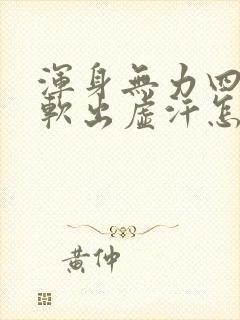 渾身無力四
軟出虛汗怎
黃仲